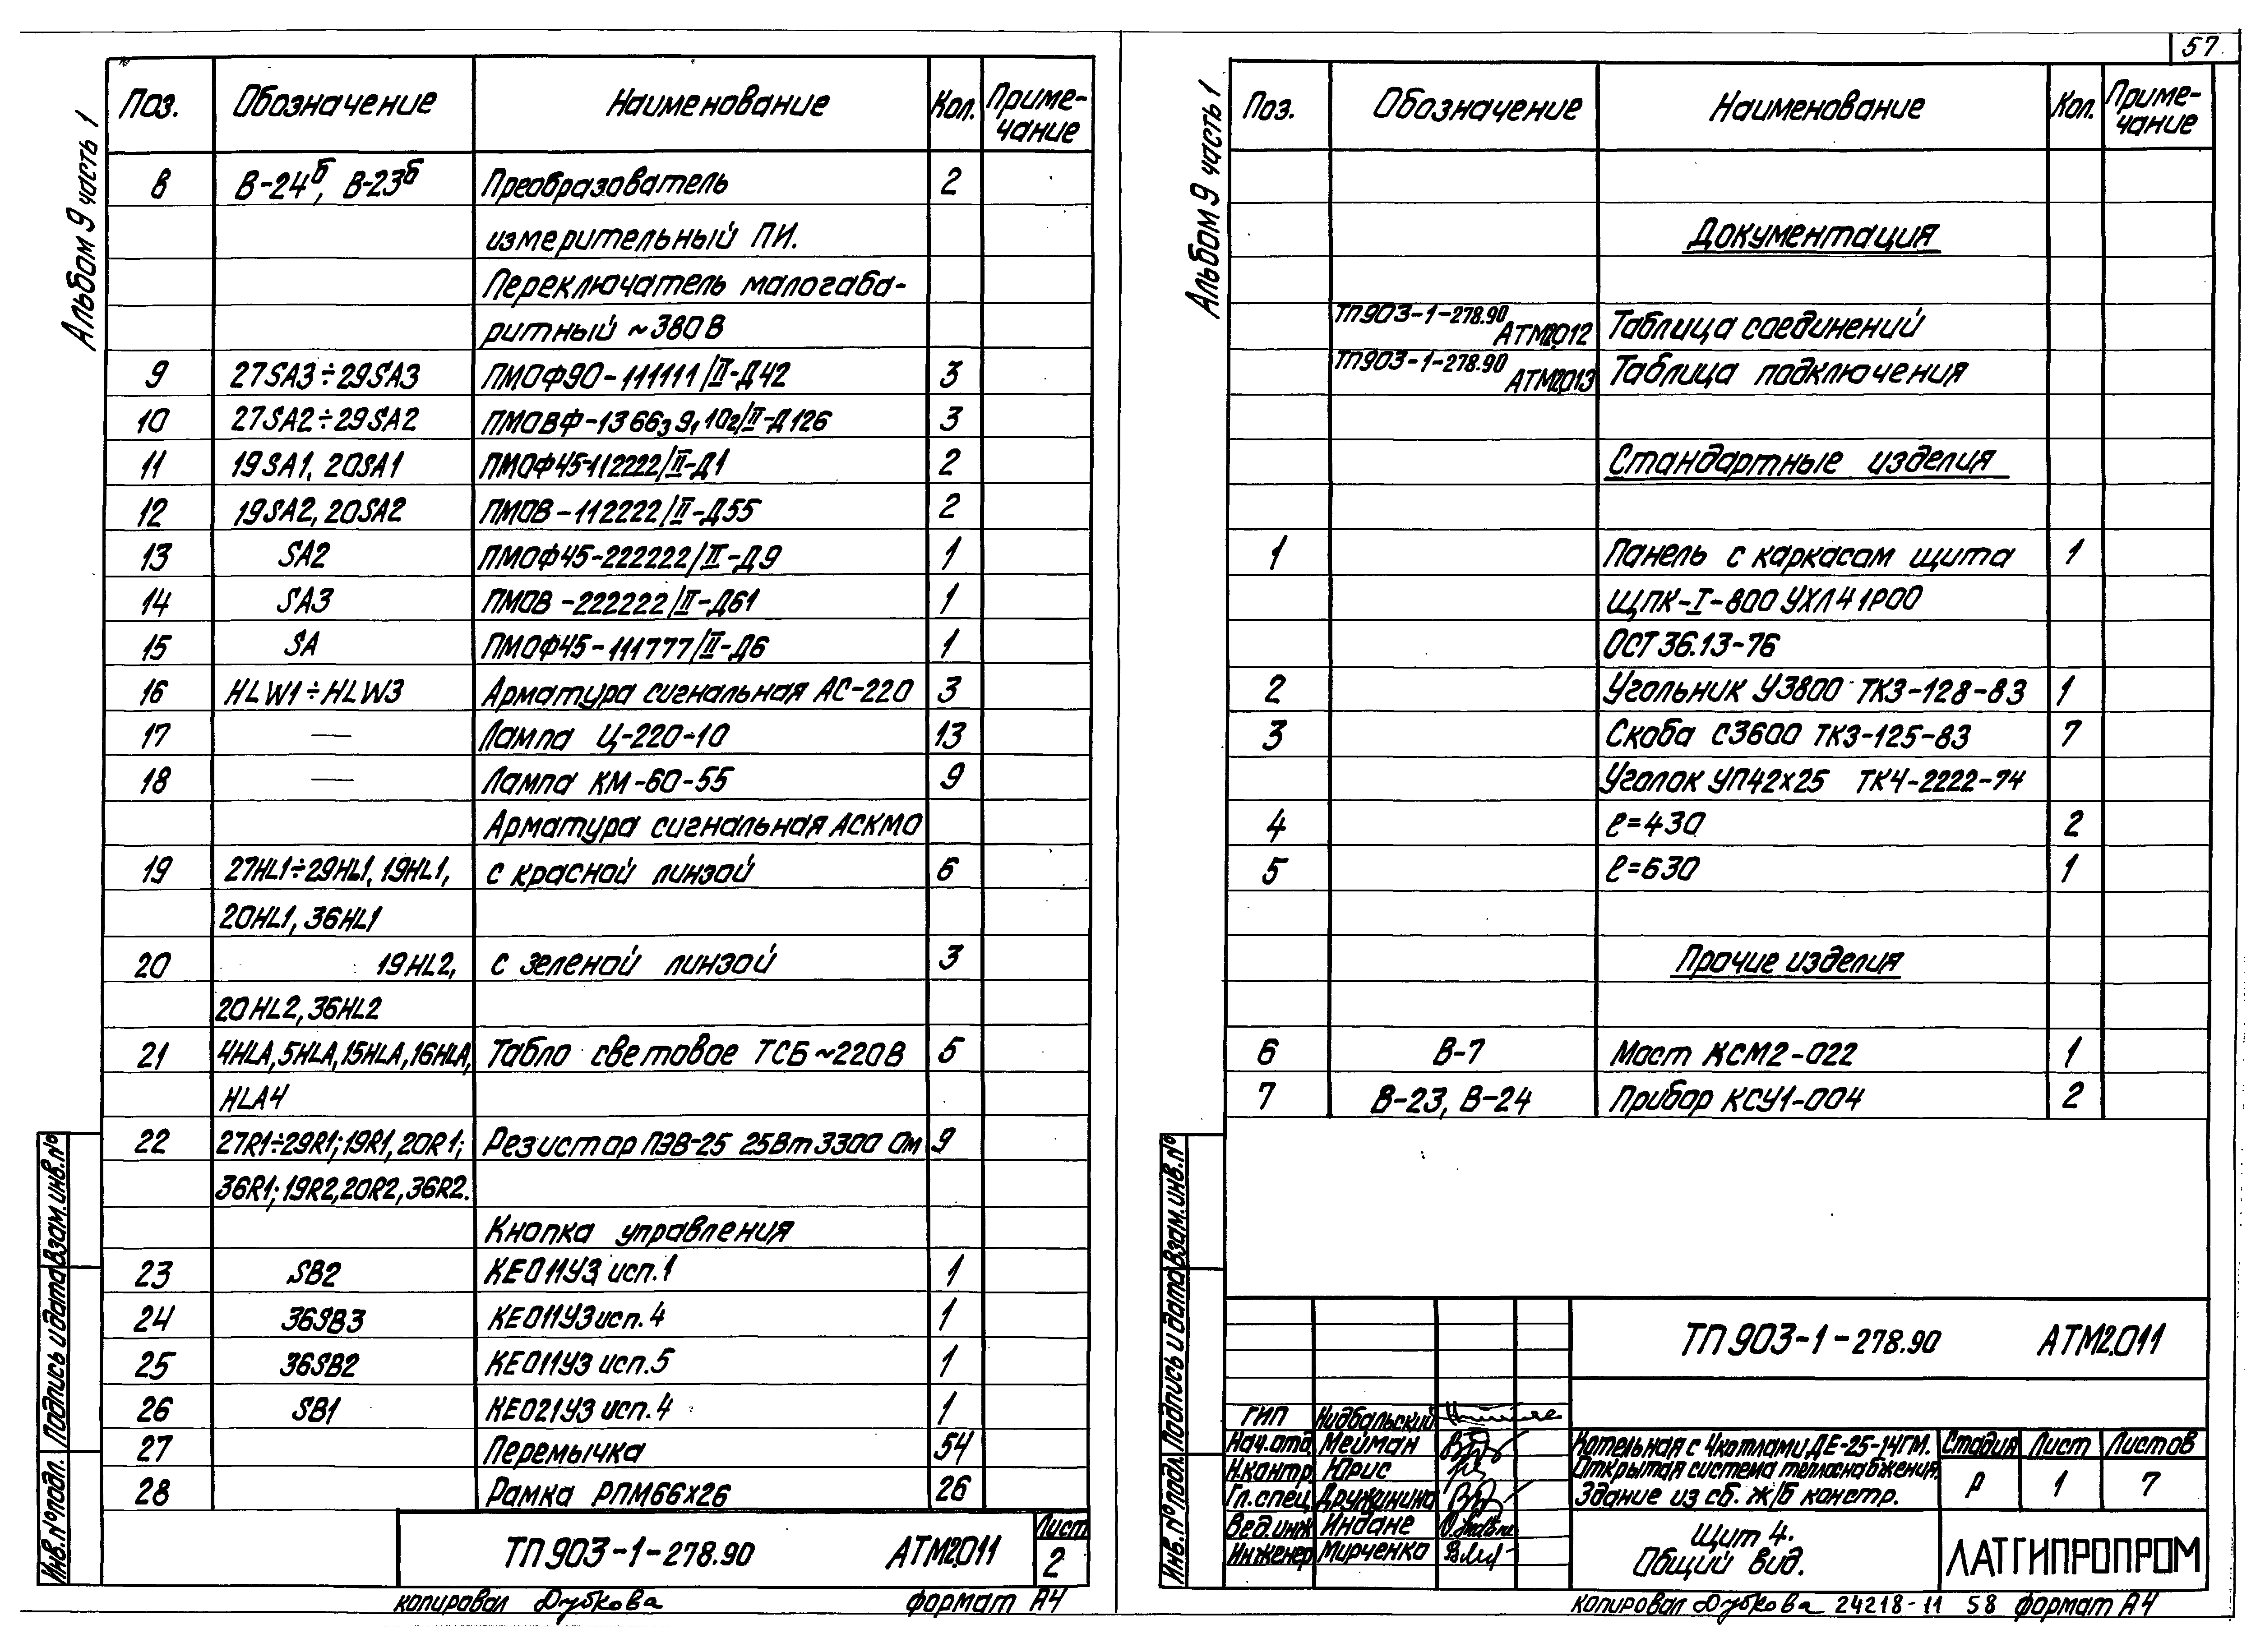 57
Альбом 9 часть 1
Поз. Обозначение Наименование Кол. Приме-
чание
8 В-24б, В-23б Преобразователь 2
измерительный ПИ.
Переключатель малогаба-
ритный ~380В
9 27SA3÷29SA3 ПМОФ90-111111/II-Д42 3
10 27SA2÷29SA2 ПМОВФ-1366₃9,10₂/II-Д126 3
11 19SA1, 20SA1 ПМОФ45-112222/II-Д1 2
12 19SA2, 20SA2 ПМОВ-112222/II-Д55 2
13 SA2 ПМОФ45-222222/II-Д9 1
14 SA3 ПМОВ-222222/II-Д61 1
15 SA ПМОФ45-111777/II-Д6 1
16 HLW1÷HLW3 Арматура сигнальная АС-220 3
17 — Лампа Ц-220-10 13
18 — Лампа КМ-60-55 9
Арматура сигнальная АСКМО
19 27HL1÷29HL1, 19HL1, с красной линзой 6
20HL1, 36HL1
20 19HL2, с зеленой линзой 3
20HL2, 36HL2
21 4HLA, 5HLA, 15HLA, 16HLA, Табло световое ТСБ ~220В 5
HLA4
22 27R1÷29R1; 19R1, 20R1; Резистор ПЭВ-25 25Вт 3300 Ом 9
36R1; 19R2, 20R2, 36R2.
Кнопка управления
23 SB2 КЕ011У3 исп.1 1
24 36SB3 КЕ011У3 исп.4 1
25 36SB2 КЕ011У3 исп.5 1
26 SB1 КЕ021У3 исп.4 1
27 Перемычка 54
28 Рамка РПМ66х26 26
Инв.№подл. Подпись и дата Взам.инв.№
ТП 903-1-278.90 АТМ2.011 Лист
2
копировал Дубкова формат А4
Альбом 9 часть 1
Поз. Обозначение Наименование Кол. Приме-
чание
Документация
ТП903-1-278.90
АТМ2.012 Таблица соединений
ТП903-1-278.90
АТМ2.013 Таблица подключения
Стандартные изделия
1 Панель с каркасом щита 1
ЩПК-I-800 УХЛ4 IP00
ОСТ 36.13-76
2 Угольник У3800 ТК3-128-83 1
3 Скоба С3600 ТК3-125-83 7
Уголок УП42х25 ТК4-2222-74
4 ℓ=430 2
5 ℓ=630 1
Прочие изделия
6 В-7 Мост КСМ2-022 1
7 В-23, В-24 Прибор КСУ1-004 2
Инв.№подл. Подпись и дата Взам.инв.№
ТП 903-1-278.90 АТМ2.011
ГИП Нидбальский
Нач.отд. Мейман
Н.контр. Юрис
Гл.спец. Дружинина
Вед.инж. Индане
Инженер Мирченко
Котельная с 4 котлами ДЕ-25-14ГМ.
Открытая система теплоснабжения.
Здание из сб. ж/б констр.
Стадия Лист Листов
Р 1 7
Щит 4.
Общий вид.
ЛАТГИПРОПРОМ
копировал Дубкова 24218-11 58 формат А4